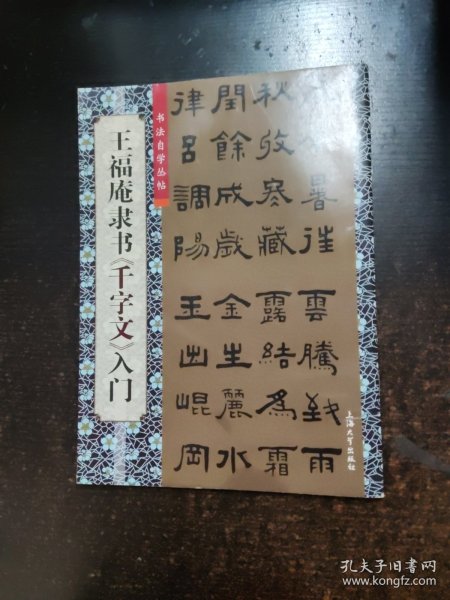 王福庵隶书《千字文》入门
书法自学丛帖
暑往雲騰致雨
秋收冬藏露結為霜
閏餘成歲金生麗水
律呂調陽玉出崐岡
上海大学出版社
孔夫子旧书网
www.kongfz.com